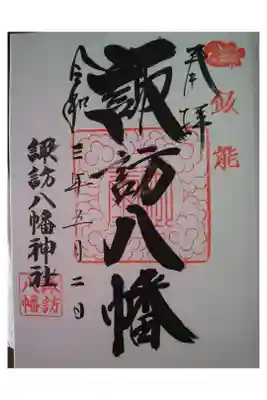 奉拝
飯能
諏訪八幡
令和三年五月二日
諏訪八幡神社
諏訪
八幡